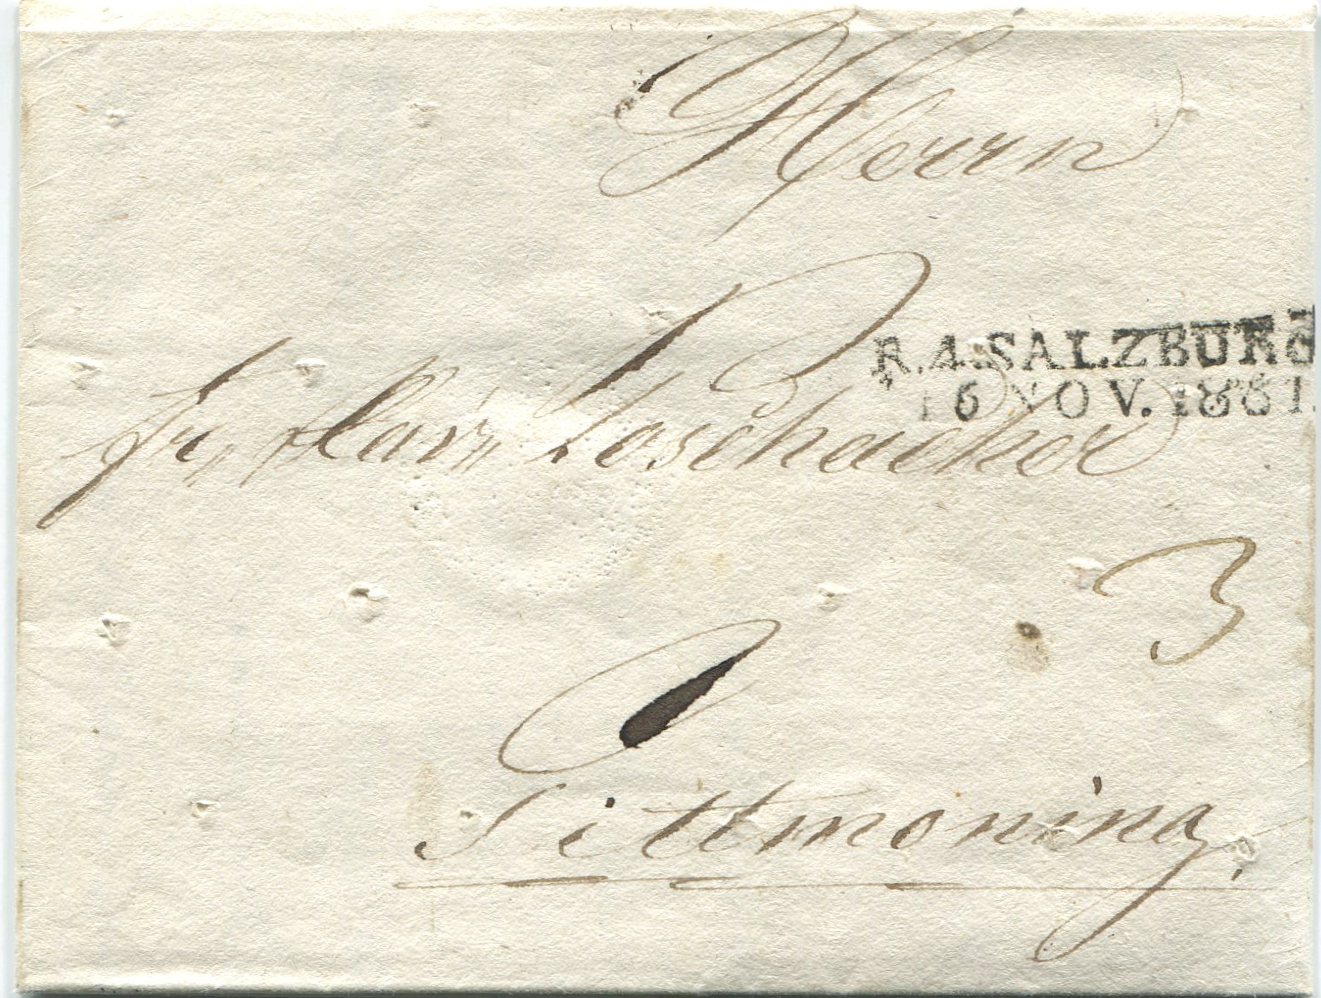 Herrn
R.4.SALZBURG
16 NOV. 1831.
Poschacher
3
Tittmoning.